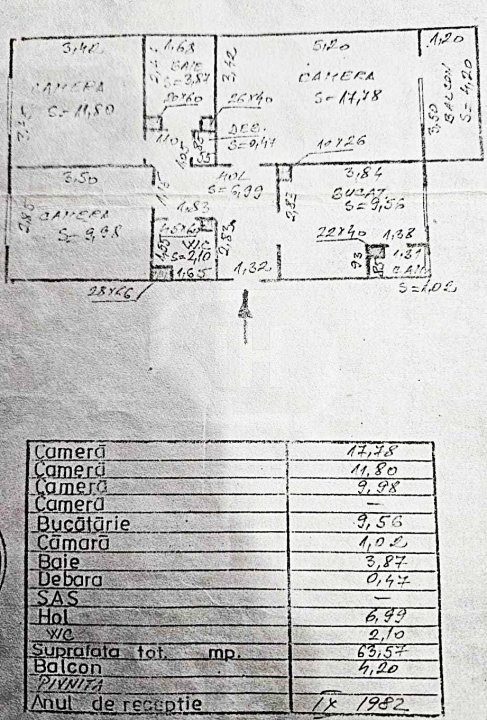 3,42 1,68 5,20 1,20
CAMERA S=11,80
BAIE S=3,87
3,42
CAMERA S=17,78
3,50 BALCON S=4,20
26x40
DEB. S=0,47
10x26
3,50
HOL S=6,99
3,84
BUCAT S=9,56
2,82
2,85 CAMERA S=9,98
1,83
WC S=2,10
2,83
22x40 1,38
93
1,65 1,32
S=1,02
28x26
Cameră 17,78
Cameră 11,80
Cameră 9,98
Cameră —
Bucătărie 9,56
Cămară 1,02
Baie 3,87
Debara 0,47
SAS —
Hol 6,99
WC 2,10
Suprafața tot. mp. 63,57
Balcon 4,20
PIVNIȚA
Anul de recepție IX 1982